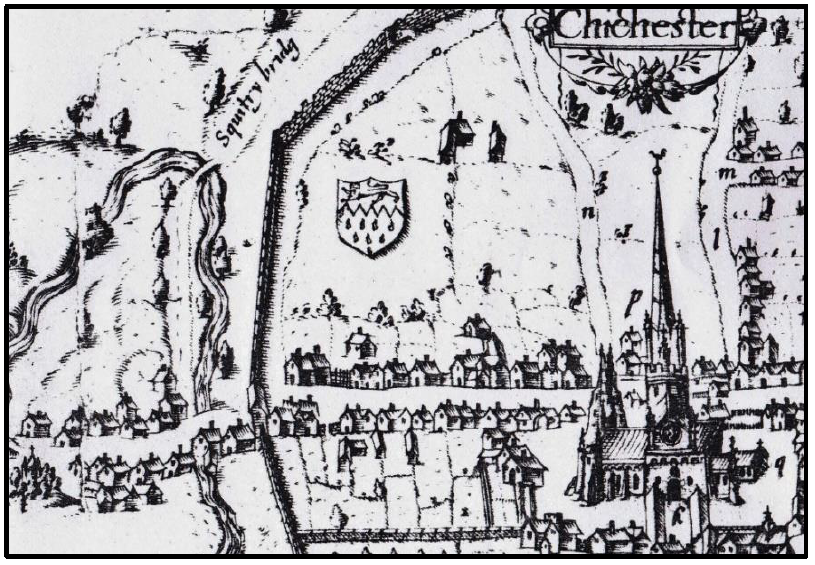 Chichester
Squitry bridg
m
n
l
p
q
k